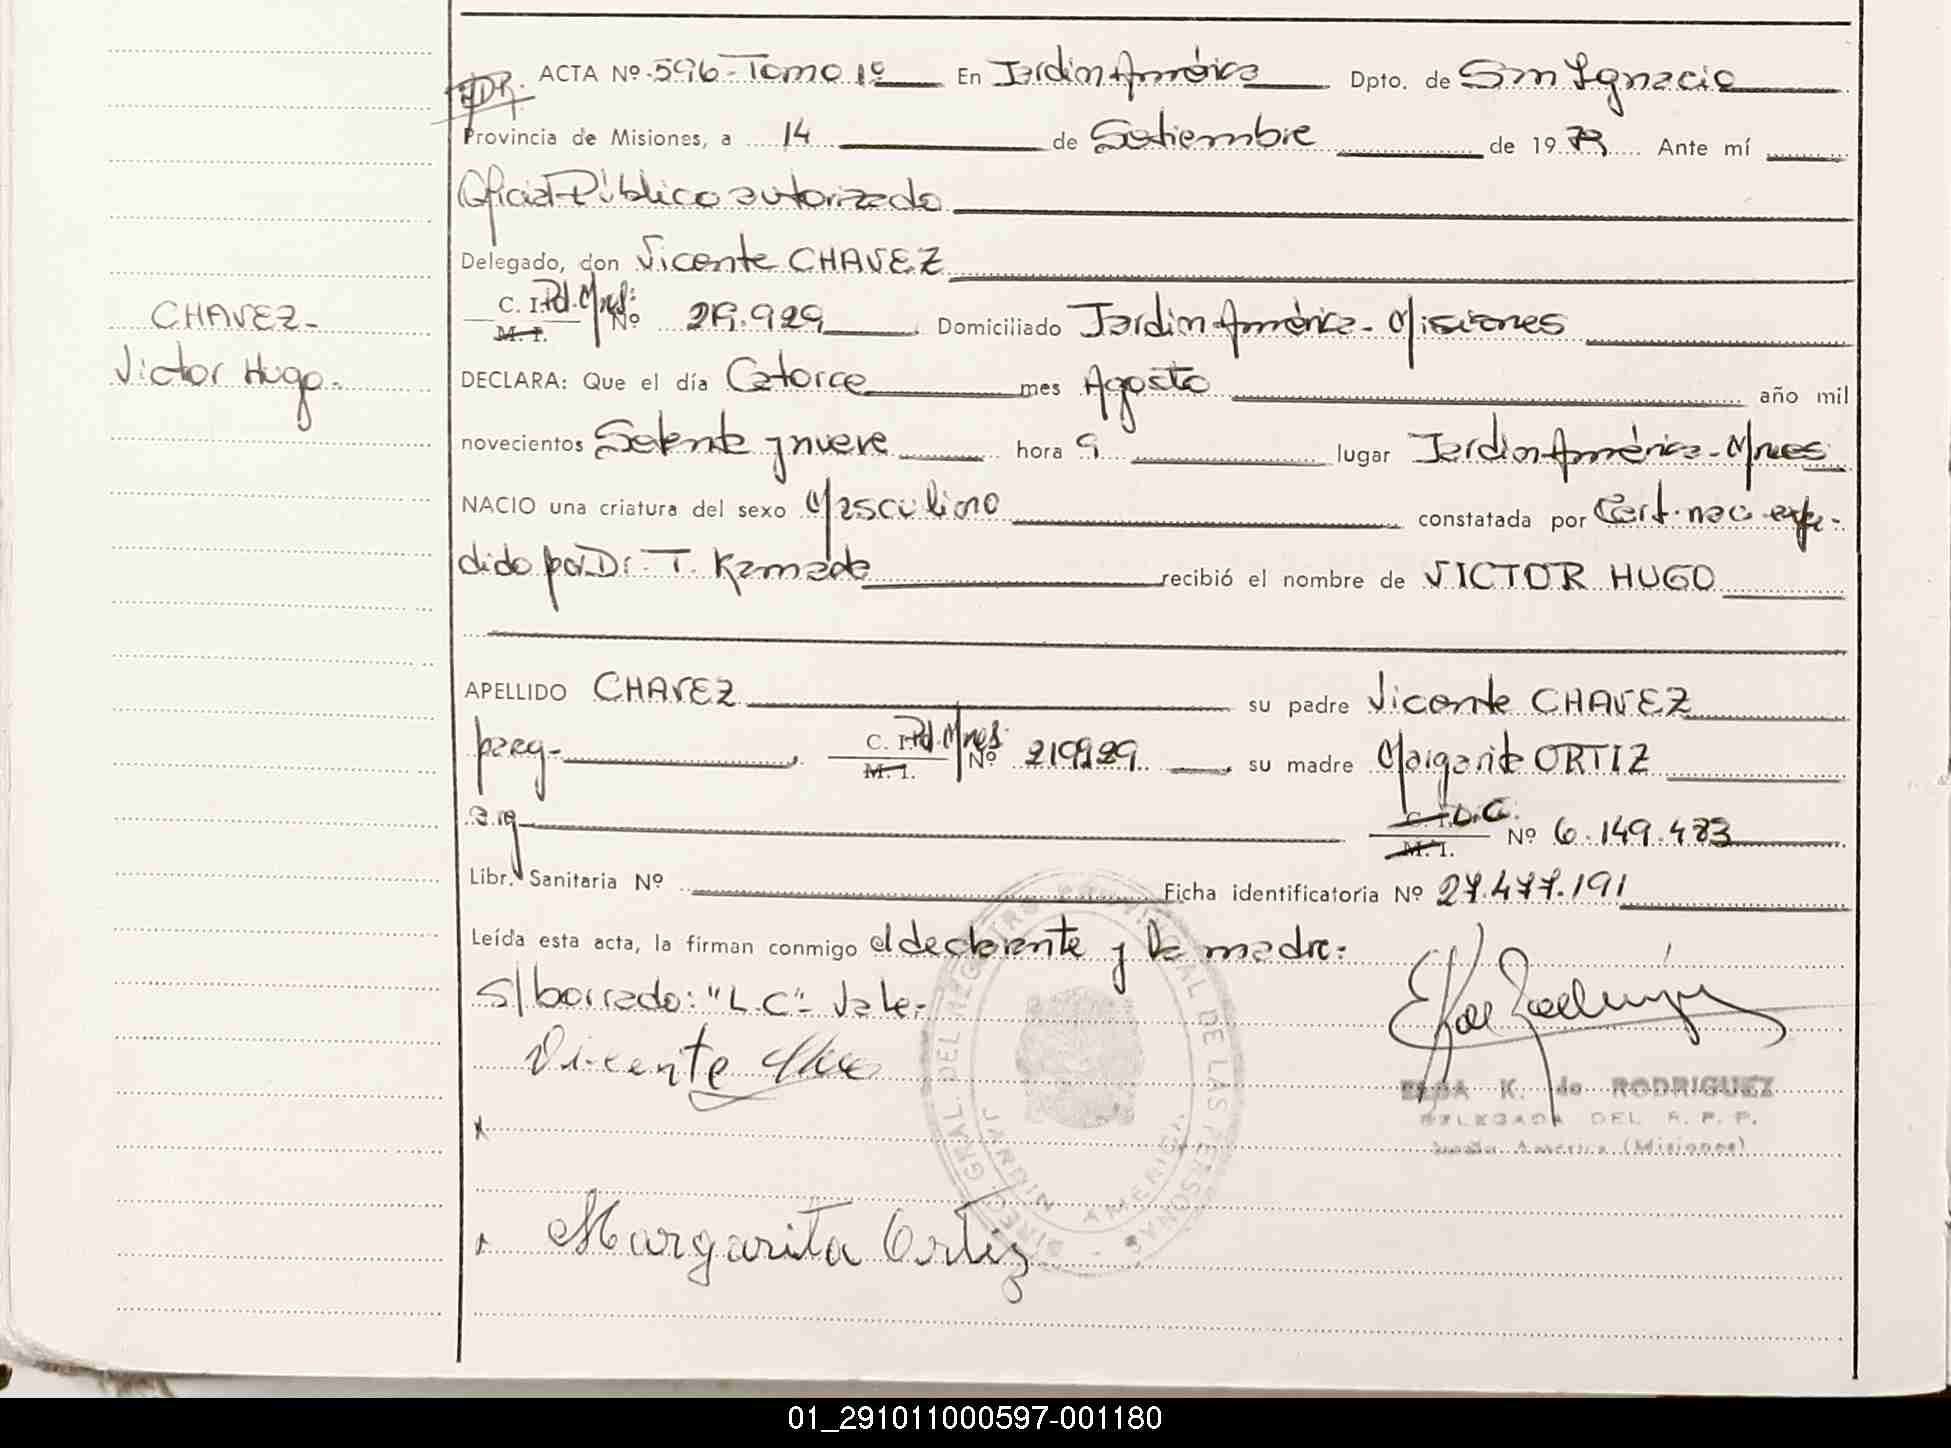 ACTA Nº 596 - Tomo 1º En Jardin América Dpto. de San Ignacio
Provincia de Misiones, a 14 de Setiembre de 1979 Ante mí
Oficial Público autorizado
Delegado, don Vicente CHAVEZ
C. I. Pol. Mnes. Nº 219.929 Domiciliado Jardin América - Misiones
M. I.
CHAVEZ -
Victor Hugo -
DECLARA: Que el día Catorce mes Agosto año mil
novecientos Setenta y nueve hora 9 lugar Jardin América - Mnes
NACIO una criatura del sexo Masculino constatada por Cert. nac expe-
dido por Dr. T. Kamada recibió el nombre de VICTOR HUGO
APELLIDO CHAVEZ su padre Vicente CHAVEZ
parag - C. I. Pol. Mnes. Nº 219929 su madre Margarita ORTIZ
M. I.
arg C. I. D.C. Nº 6.149.483
M. I.
Libr. Sanitaria Nº Ficha identificatoria Nº 27.477.191
Leída esta acta, la firman conmigo el declarante y la madre:
S/borrado: "L.C" - Vale -
Vicente
ELBA K. de RODRIGUEZ
DELEGADA DEL R. P. P.
Jardín América (Misiones)
DIREC. GRAL. DEL REGISTRO PROVINCIAL DE LAS PERSONAS
JARDIN AMERICA
Margarita Ortiz
01_291011000597-001180